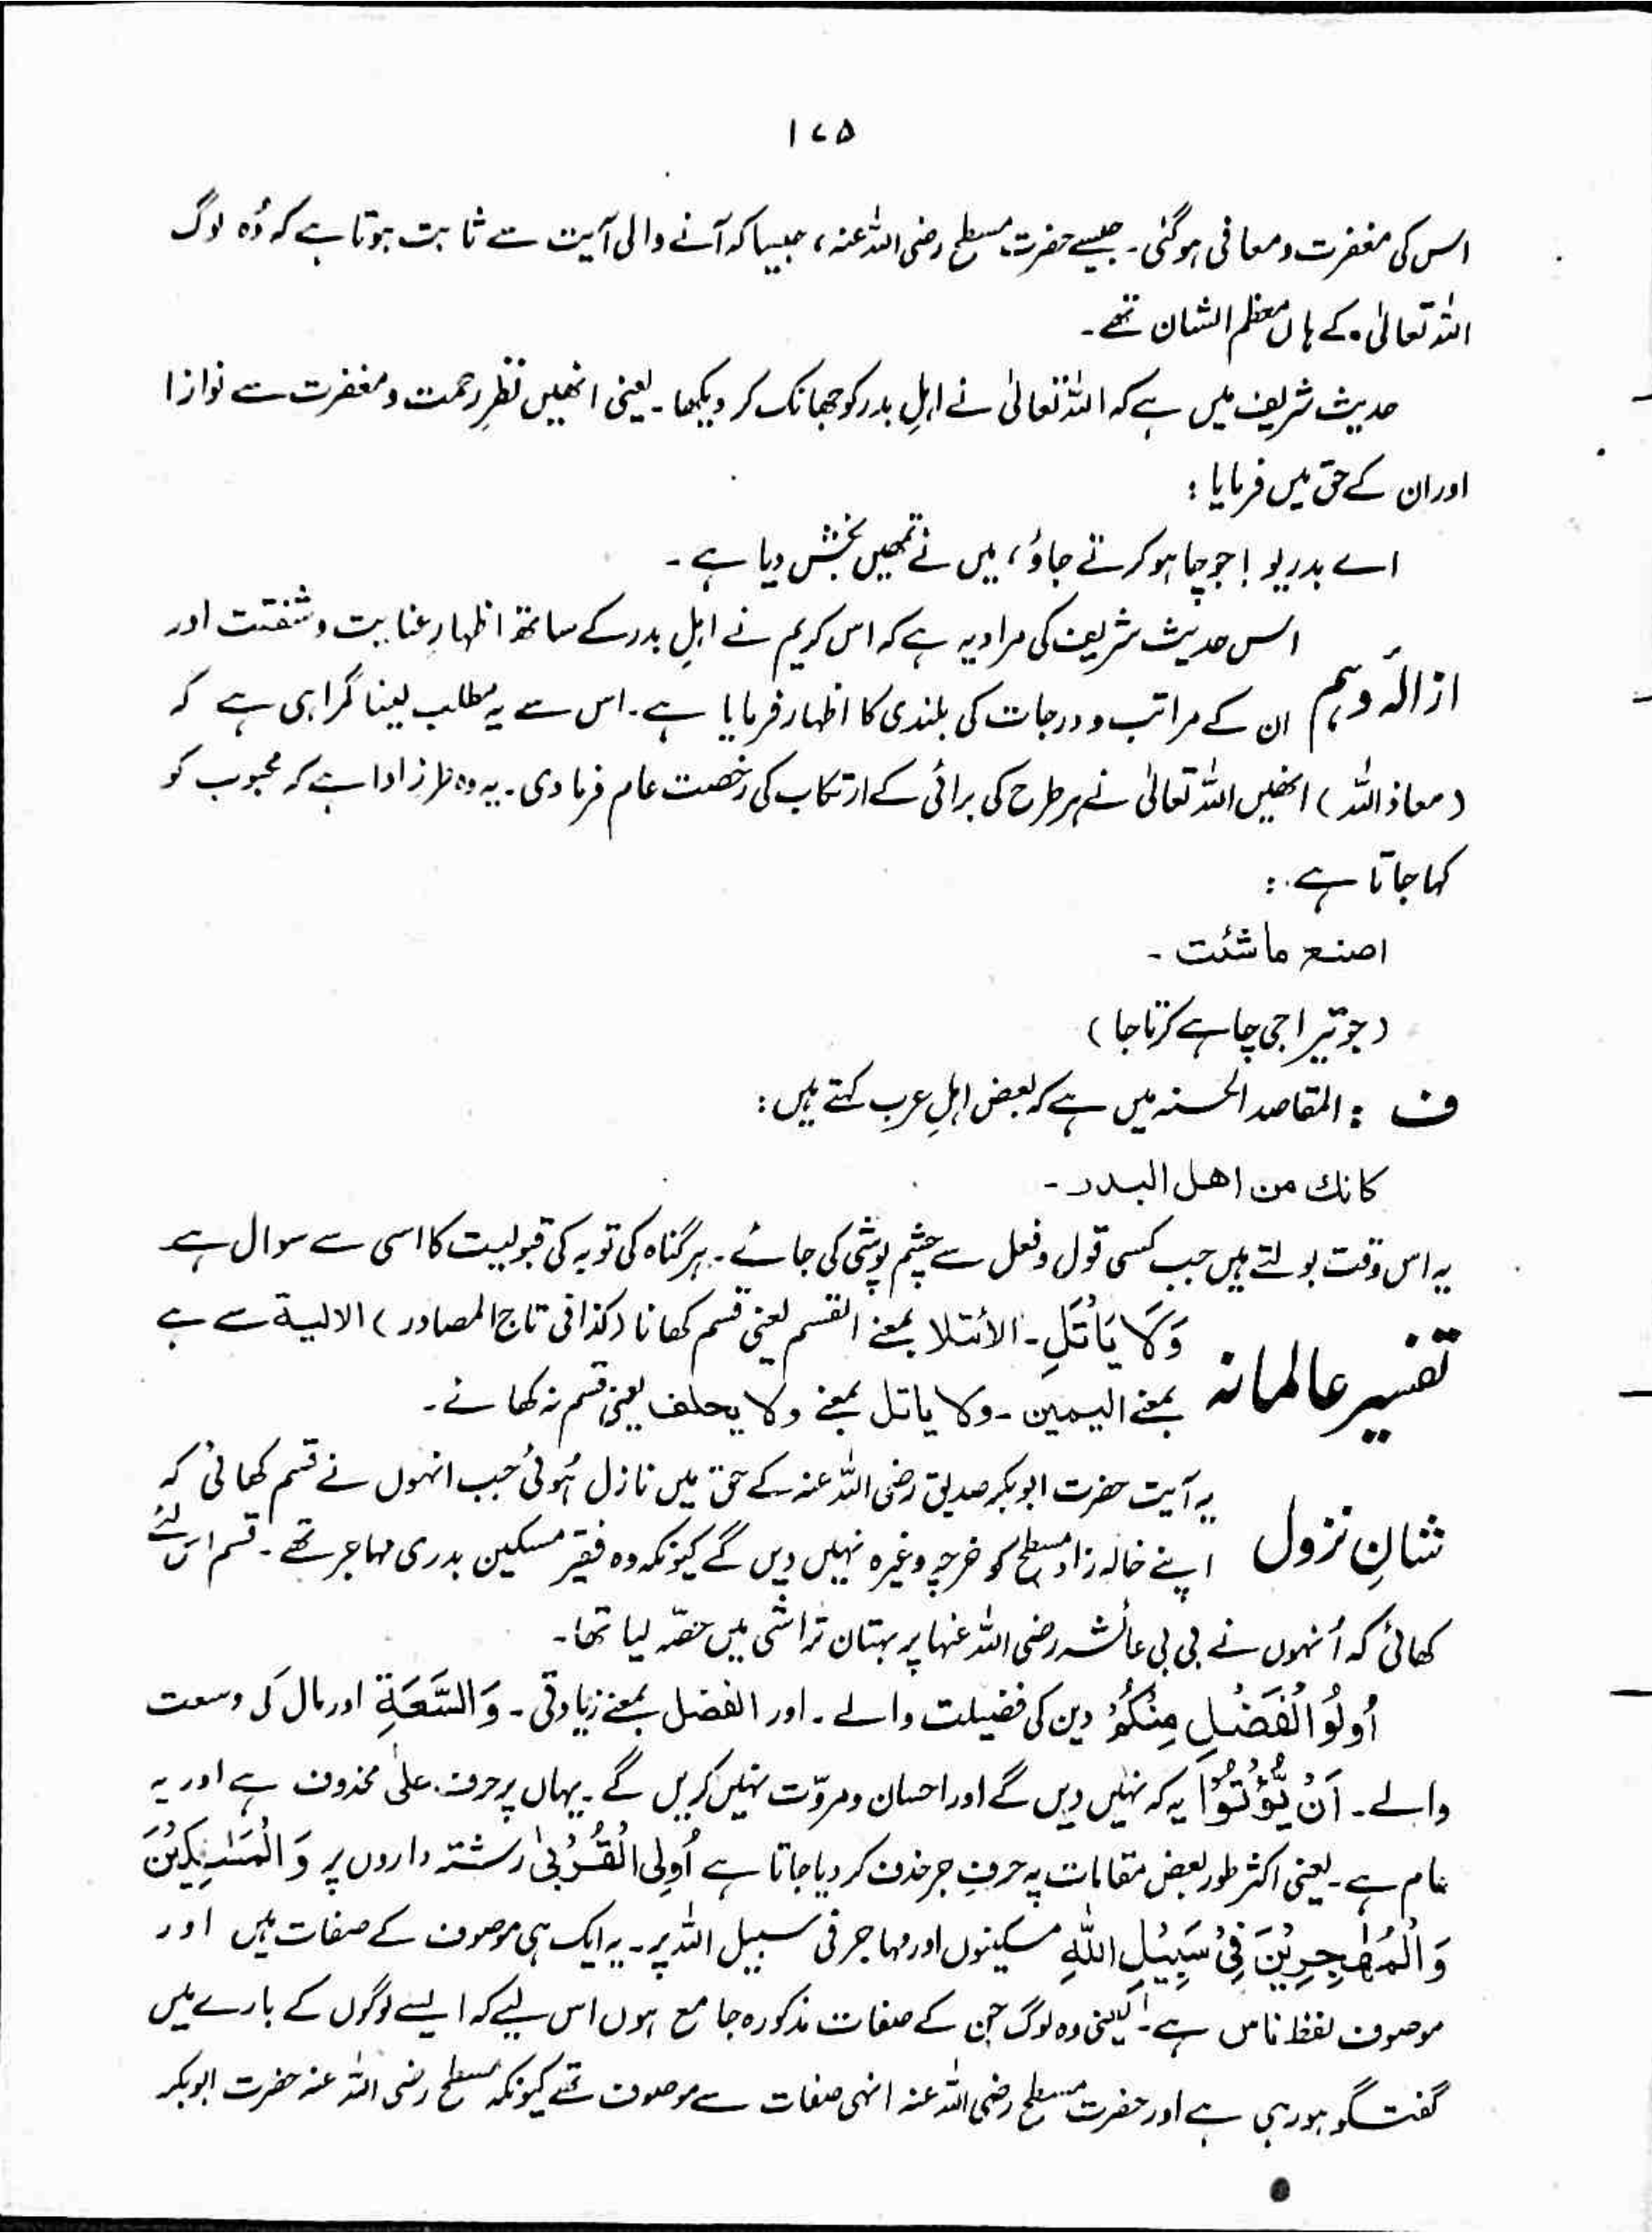 ۱۷۵
اس کی مغفرت و معافی ہوگئی۔ جیسے حضرت مسطح رضی اللہ عنہ، جیسا کہ آنے والی آیت سے ثابت ہوتا ہے کہ وُہ لوگ
اللہ تعالیٰ کے ہاں معظم الشان تھے۔
حدیث شریف میں ہے کہ اللہ تعالیٰ نے اہلِ بدر کو جھانک کر دیکھا۔ یعنی انھیں نظرِ رحمت و مغفرت سے نوازا
اور ان کے حق میں فرمایا :
اے بدریو ! جو چاہو کرتے جاؤ، میں نے تمھیں بخش دیا ہے۔
اس حدیث شریف کی مراد یہ ہے کہ اس کریم نے اہلِ بدر کے ساتھ اظہارِ عنایت و شفقت اور
ازالۂ وہم ان کے مراتب و درجات کی بلندی کا اظہار فرمایا ہے۔ اس سے یہ مطلب لینا گمراہی ہے کہ
(معاذ اللہ) انھیں اللہ تعالیٰ نے ہر طرح کی برائی کے ارتکاب کی رخصت عام فرما دی۔ یہ وہ طرزِ ادا ہے کہ محبوب کو
کہا جاتا ہے :
اصنع ماشئت ۔
(جو تیرا جی چاہے کرتا جا)
ف : المقاصد الحسنہ میں ہے کہ بعض اہلِ عرب کہتے ہیں :
کانك من اهل البدر۔
یہ اس وقت بولتے ہیں جب کسی قول و فعل سے چشم پوشی کی جائے۔ ہر گناہ کی توبہ کی قبولیت کا اسی سے سوال ہے
تفسیر عالمانہ وَلَا یَاْتَلِ۔ الأئتلا بمعنے القسم یعنی قسم کھانا (کذا فی تاج المصادر) الالیة سے ہے
بمعنے الیمین۔ ولا یاتل بمعنے ولا یحلف یعنی قسم نہ کھائے۔
یہ آیت حضرت ابوبکر صدیق رضی اللہ عنہ کے حق میں نازل ہُوئی جب انہوں نے قسم کھائی کہ
شانِ نزول اپنے خالہ زاد مسطح کو خرچہ وغیرہ نہیں دیں گے کیونکہ وہ فقیر مسکین بدری مہاجر تھے۔ قسم اس لئے
کھائی کہ اُنہوں نے بی بی عائشہ رضی اللہ عنہا پر بہتان تراشی میں حصّہ لیا تھا۔
اُولُوا الْفَضْلِ مِنْکُمْ دین کی فضیلت والے۔ اور الفضل بمعنے زیادتی۔ وَالسَّعَةِ اور مال کی وسعت
والے۔ اَنْ یُّؤْتُوْا یہ کہ نہیں دیں گے اور احسان و مروّت نہیں کریں گے۔ یہاں پر حرف علیٰ محذوف ہے اور یہ
عام ہے۔ یعنی اکثر طور بعض مقامات پہ حرفِ جر حذف کر دیا جاتا ہے اُولِی الْقُرْبٰی رشتہ داروں پر وَالْمَسٰکِیْنَ
وَالْمُهٰجِرِیْنَ فِیْ سَبِیْلِ اللّٰهِ مسکینوں اور مہاجر فی سبیل اللہ پر۔ یہ ایک ہی موصوف کے صفات ہیں اور
موصوف لفظ ناس ہے۔ یعنی وہ لوگ جن کے صفات مذکورہ جامع ہوں اس لیے کہ ایسے لوگوں کے بارے میں
گفتگو ہو رہی ہے اور حضرت مسطح رضی اللہ عنہ انہی صفات سے موصوف تھے کیونکہ مسطح رضی اللہ عنہ حضرت ابوبکر